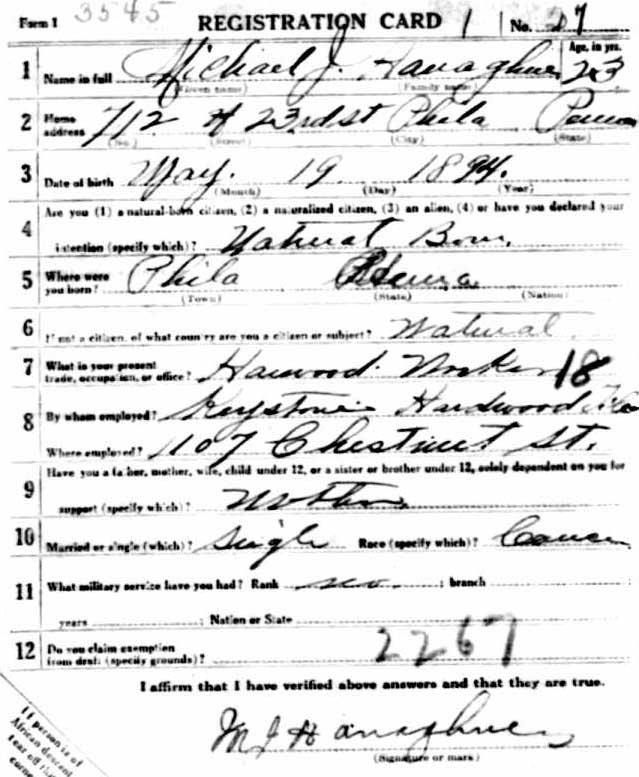 Form 1 3545 REGISTRATION CARD No. 27
1 Name in full Michael J. Hanaghue Age, in yrs. 23
(Given name) (Family name)
2 Home address 712 N 23rd st Phila Penna
(No.) (Street) (City) (State)
3 Date of birth May. 19 1894.
(Month) (Day) (Year)
Are you (1) a natural-born citizen, (2) a naturalized citizen, (3) an alien, (4) or have you declared your
4 intention (specify which)? Natural Born.
5 Where were you born? Phila Penna
(Town) (State) (Nation)
6 If not a citizen, of what country are you a citizen or subject? Natural
7 What is your present trade, occupation, or office? Harwood Worker 18
8 By whom employed? Keystone Hardwood Co
Where employed? 1107 Chestnut St.
Have you a father, mother, wife, child under 12, or a sister or brother under 12, solely dependent on you for
9 support (specify which)? Mother
10 Married or single (which)? Single Race (specify which)? Caucas
11 What military service have you had? Rank no ; branch
years ; Nation or State
12 Do you claim exemption from draft (specify grounds)? 2267
I affirm that I have verified above answers and that they are true.
M J Hanaghue
(Signature or mark)
If person is of
African descent
tear off this
corner